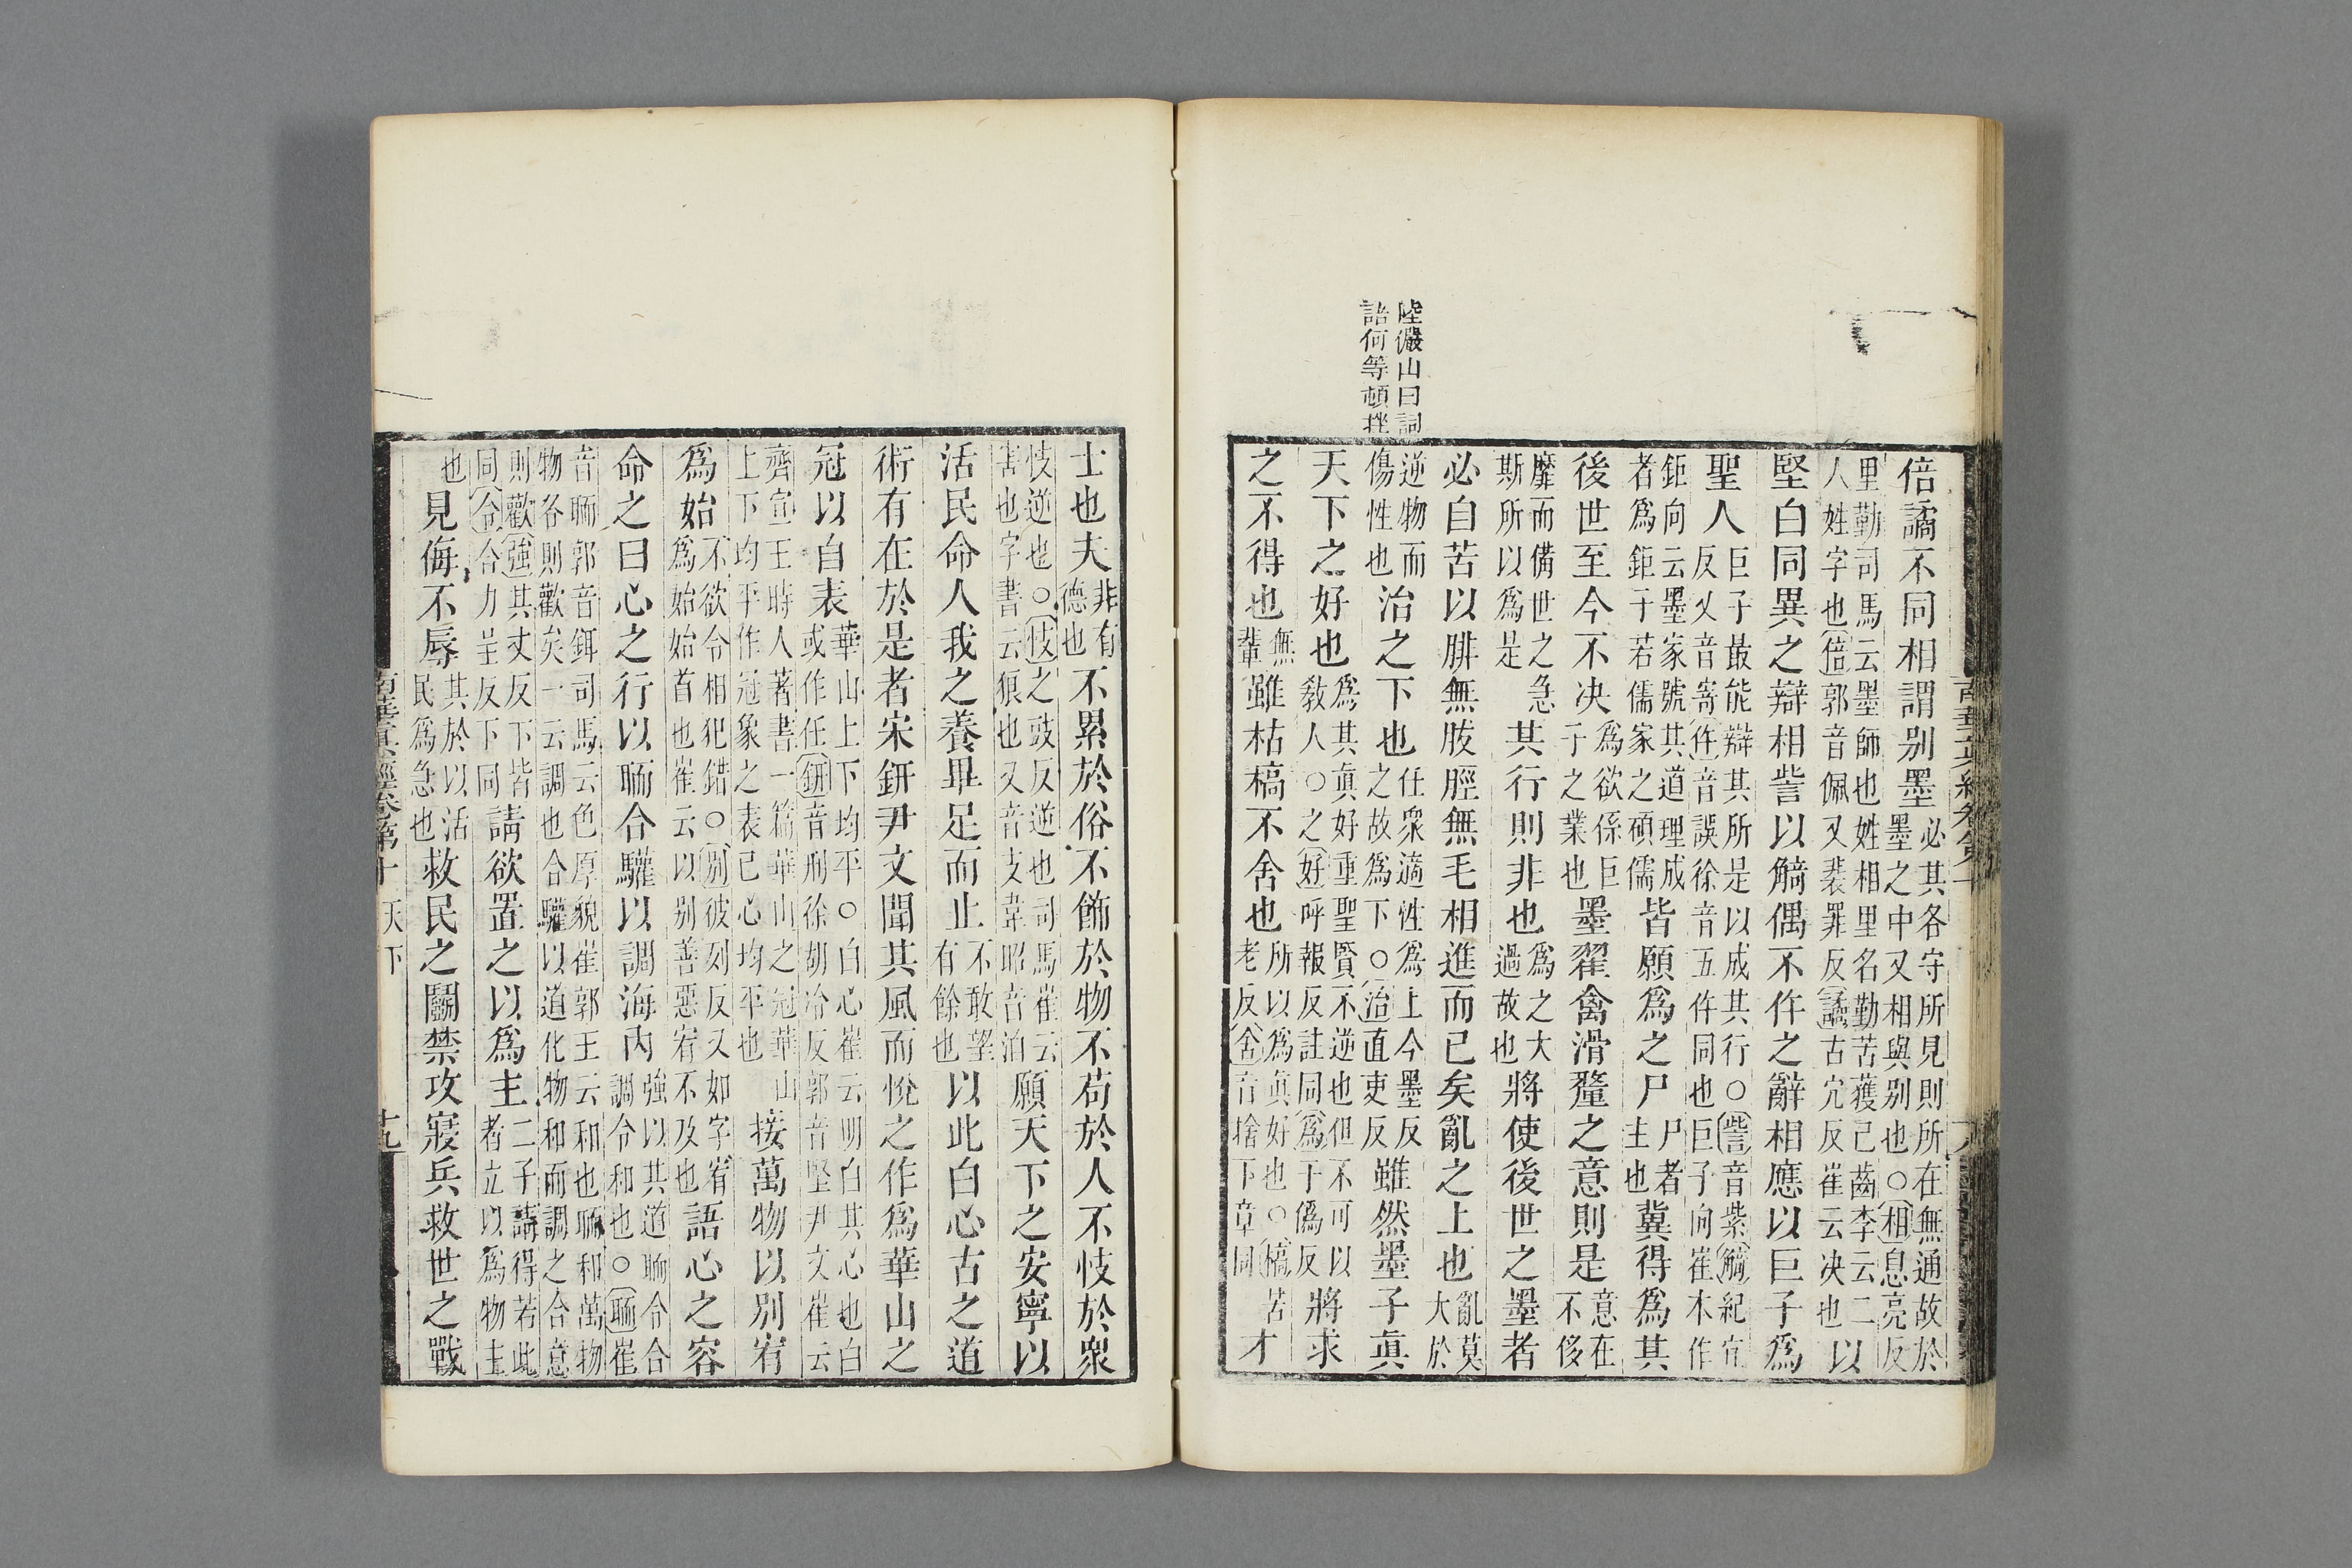 陸儼山曰詞
語何等頓挫
倍譎不同相謂别墨必其各守所見則所在無通故於墨之中又相與别也○相息亮反
里勤司馬云墨師也姓相里名勤苦獲己齒李云二人姓字也倍郭音佩又裴罪反譎古宂反崔云决也以
堅白同異之辯相訾以觭偶不仵之辭相應以巨子爲
聖人巨子最能辯其所是以成其行○訾音紫觭紀宜反又音寄仵音誤徐音五仵同也巨子向崔本作
鉅向云墨家號其道理成者爲鉅子若儒家之碩儒皆願爲之尸尸者主也冀得爲其
後世至今不决爲欲係巨子之業也墨翟禽滑釐之意則是意在不侈
靡而備世之急斯所以爲是其行則非也爲之大過故也將使後世之墨者
必自苦以腓無胈脛無毛相進而已矣亂之上也亂莫大於
逆物而傷性也治之下也任衆適性爲上今墨反之故爲下○治直吏反雖然墨子真
天下之好也爲其真好重聖賢不逆也但不可以敎人○之好呼報反註同爲于僞反將求
之不得也無輩雖枯槁不舍也所以爲真好也○槁苦老反舍音捨下章同才
士也夫非有德也不累於俗不飾於物不苟於人不忮於衆
忮逆也○忮之豉反逆也司馬崔云害也字書云狠也又音支韋昭音洎願天下之安寧以
活民命人我之養畢足而止不敢望有餘也以此白心古之道
術有在於是者宋鈃尹文聞其風而悅之作爲華山之
冠以自表華山上下均平○白心崔云明白其心也白或作任鈃音刑徐胡冷反郭音堅尹文崔云
齊宣王時人著書一篇華山之冠華山上下均平作冠象之表己心均平也接萬物以别宥
爲始不欲令相犯錯○别彼列反又如字宥爲始始首也崔云以别善惡宥不及也語心之容
命之曰心之行以聏合驩以調海內強以其道聏令合調令和也○聏崔
音聏郭音餌司馬云色厚貌崔郭王云和也聏和萬物物各則歡矣一云調也合驩以道化物和而調之合意
則歡強其丈反下皆同令合力呈反下同請欲置之以爲主二子請得若此者立以爲物主
也見侮不辱其於以活民爲急也救民之鬬禁攻寢兵救世之戰
南華真經卷第十 天下 十九